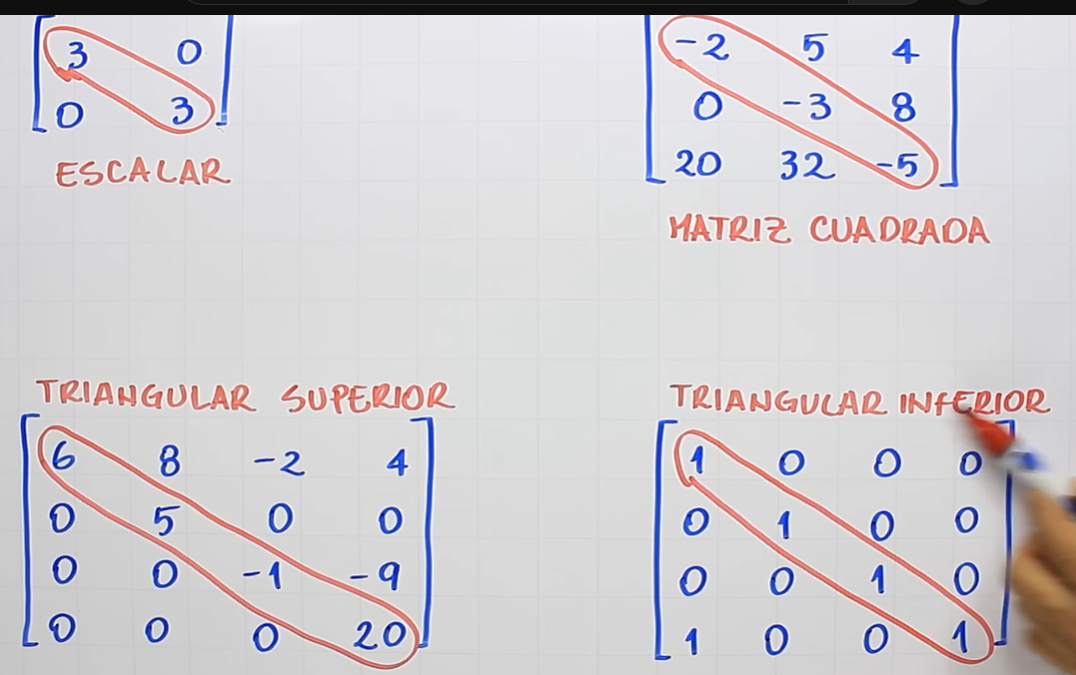 3 0
0 3
ESCALAR
-2 5 4
0 -3 8
20 32 -5
MATRIZ CUADRADA
TRIANGULAR SUPERIOR
6 8 -2 4
0 5 0 0
0 0 -1 -9
0 0 0 20
TRIANGULAR INFERIOR
1 0 0 0
0 1 0 0
0 0 1 0
1 0 0 1